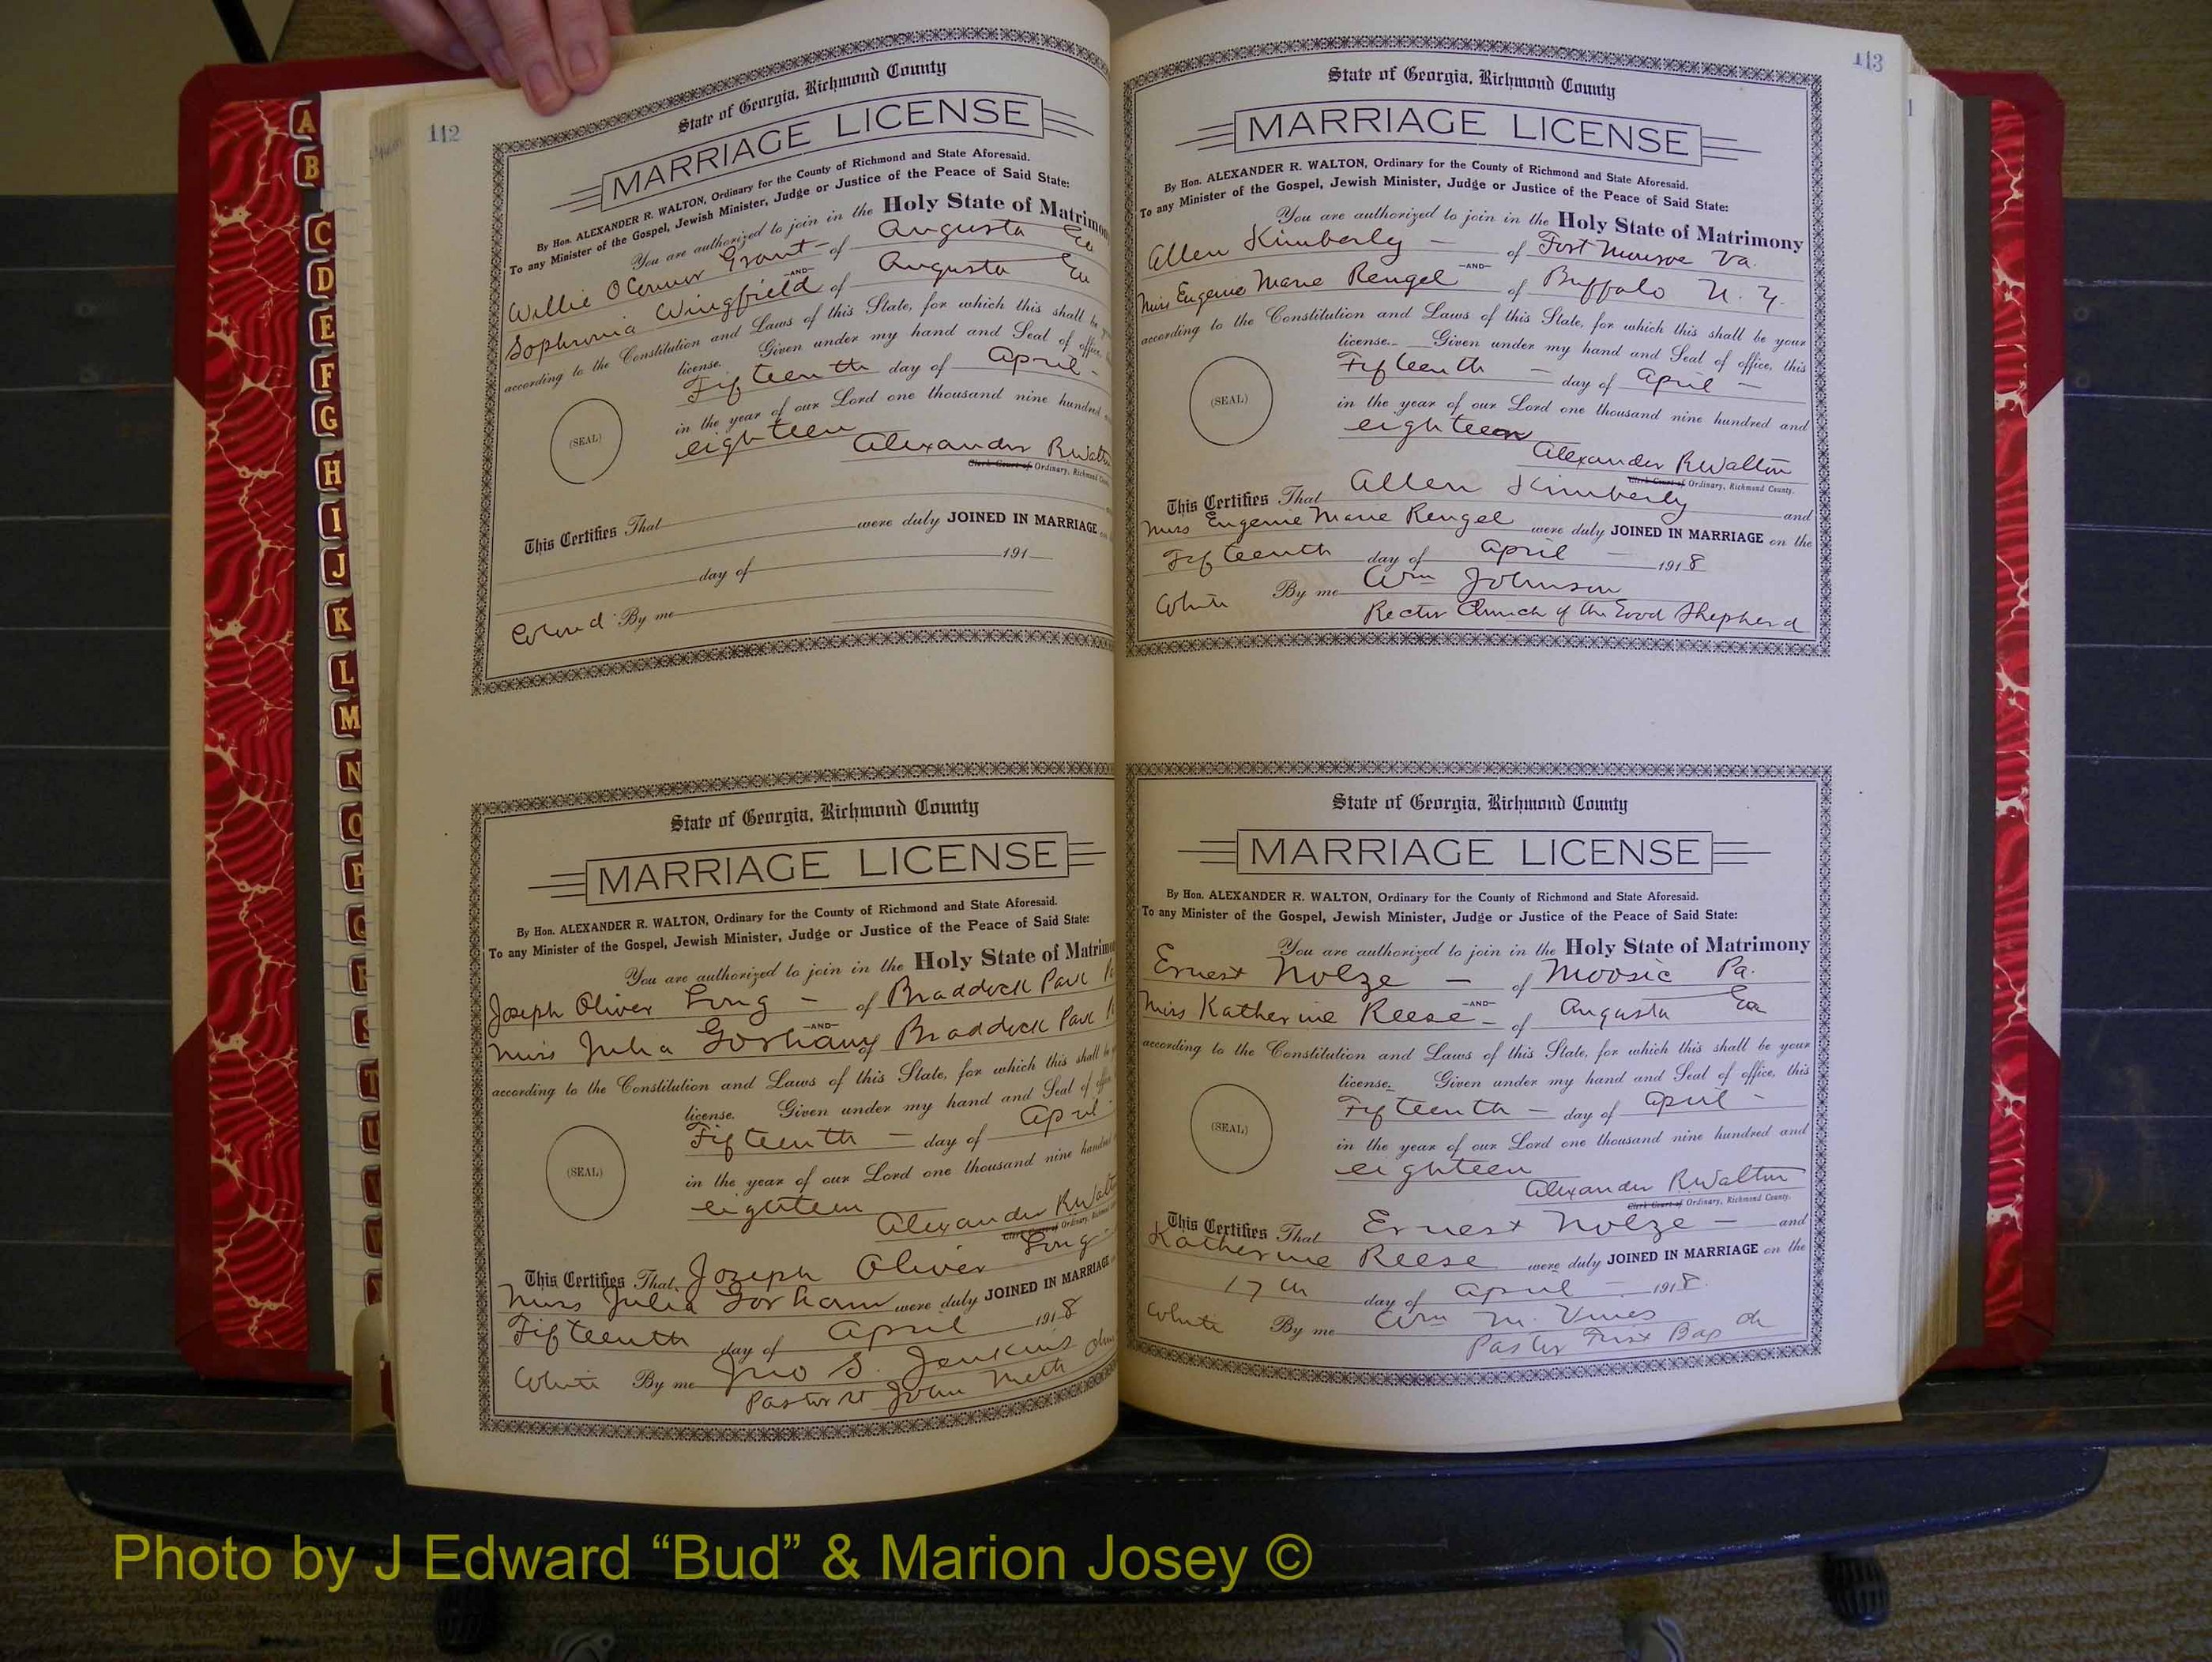 A
B
C
D
E
F
G
H
I
J
K
L
M
N
O
P
Q
R
S
T
U
V
W
112
State of Georgia, Richmond County
MARRIAGE LICENSE
By Hon. ALEXANDER R. WALTON, Ordinary for the County of Richmond and State Aforesaid.
To any Minister of the Gospel, Jewish Minister, Judge or Justice of the Peace of Said State:
You are authorized to join in the Holy State of Matrimo
Willie OConnor Grant - of Augusta Ga
-AND-
Sophronia Wingfield of Augusta Ga
according to the Constitution and Laws of this State, for which this shall be
license. Given under my hand and Seal of office,
Fifteenth day of April -
in the year of our Lord one thousand nine hundred
eighteen
(SEAL)
Alexander R Walt
Clerk Court of Ordinary, Richmond
This Certifies That
were duly JOINED IN MARRIAGE
day of 191
Colored By me
State of Georgia, Richmond County
MARRIAGE LICENSE
By Hon. ALEXANDER R. WALTON, Ordinary for the County of Richmond and State Aforesaid.
To any Minister of the Gospel, Jewish Minister, Judge or Justice of the Peace of Said State:
You are authorized to join in the Holy State of Matrim
Joseph Oliver Long - of Braddock Park
-AND-
Miss Julia Gorham of Braddock Park
according to the Constitution and Laws of this State, for which this shall be
license. Given under my hand and Seal of
Fifteenth - day of April
in the year of our Lord one thousand nine
eighteen
(SEAL)
Alexander R Walt
Clerk Court of Ordinary,
This Certifies That Joseph Oliver Long
Miss Julia Gorham were duly JOINED IN MARRIAGE
Fifteenth day of April 1918
White By me Jno S. Jenkins
Pastor St John Meth
113
State of Georgia, Richmond County
MARRIAGE LICENSE
By Hon. ALEXANDER R. WALTON, Ordinary for the County of Richmond and State Aforesaid.
To any Minister of the Gospel, Jewish Minister, Judge or Justice of the Peace of Said State:
You are authorized to join in the Holy State of Matrimony
Allen Kimberly - of Fort Monroe Va.
-AND-
Miss Eugenie Marie Rengel of Buffalo N. Y.
according to the Constitution and Laws of this State, for which this shall be your
license. Given under my hand and Seal of office, this
Fifteenth - day of April -
in the year of our Lord one thousand nine hundred and
eighteen
(SEAL)
Alexander R Walton
Clerk Court of Ordinary, Richmond County.
This Certifies That Allen Kimberly and
Miss Eugenie Marie Rengel were duly JOINED IN MARRIAGE on the
Fifteenth day of April - 1918
White By me Wm Johnson
Rector Church of the Good Shepherd
State of Georgia, Richmond County
MARRIAGE LICENSE
By Hon. ALEXANDER R. WALTON, Ordinary for the County of Richmond and State Aforesaid.
To any Minister of the Gospel, Jewish Minister, Judge or Justice of the Peace of Said State:
You are authorized to join in the Holy State of Matrimony
Ernest Nolze - of Moosic Pa.
-AND-
Miss Katherine Reese - of Augusta Ga
according to the Constitution and Laws of this State, for which this shall be your
license. Given under my hand and Seal of office, this
Fifteenth - day of April -
in the year of our Lord one thousand nine hundred and
eighteen
(SEAL)
Alexander R Walton
Clerk Court of Ordinary, Richmond County.
This Certifies That Ernest Nolze - and
Katherine Reese were duly JOINED IN MARRIAGE on the
17th day of April - 1918
White By me Wm M. Vines
Pastor First Bap Ch
Photo by J Edward “Bud” & Marion Josey ©